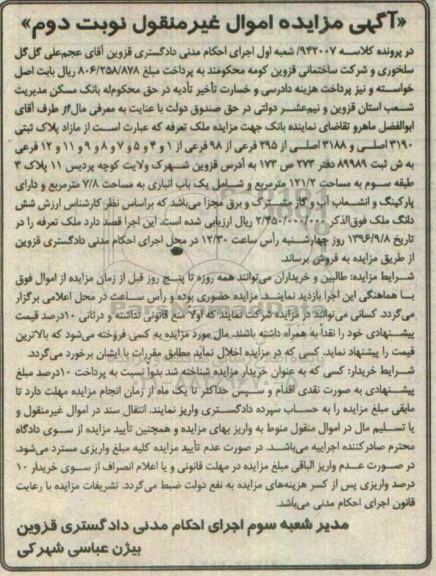 «آگهی مزایده اموال غیرمنقول نوبت دوم»
در پرونده کلاسه ۹۴۲۰۰۷/ شعبه اول اجرای احکام مدنی دادگستری قزوین آقای عجم‌علی گل‌گل
سلخوری و شرکت ساختمانی قزوین کومه محکومند به پرداخت مبلغ ۸۰۶/۲۵۸/۸۷۸ ریال بابت اصل
خواسته و نیز پرداخت هزینه دادرسی و خسارت تأخیر تأدیه در حق محکوم‌له بانک مسکن مدیریت
شعب استان قزوین و نیم‌عشر دولتی در حق صندوق دولت با عنایت به معرفی مال از طرف آقای
ابوالفضل ماهرو تقاضای نماینده بانک جهت مزایده ملک تعرفه که عبارت است از مازاد پلاک ثبتی
۳۱۹۰ اصلی و ۳۱۸۸ اصلی از ۳۹۵ فرعی از ۹۸ فرعی از ۱ و ۴ و ۵ و ۷ و ۸ و ۹ و ۱۱ و ۱۲ فرعی
به ش ثبت ۸۹۹۸۹ دفتر ۲۷۳ ص ۱۷۳ به آدرس قزوین شهرک ولایت کوچه پردیس ۱۱ پلاک ۳
طبقه سوم به مساحت ۱۲۱/۲ مترمربع و شامل یک باب انباری به مساحت ۷/۸ مترمربع و دارای
پارکینگ و انشعاب آب و گاز مشترک و برق مجزا می‌باشد که براساس نظر کارشناس ارزش شش
دانگ ملک فوق‌الذکر ۲/۴۵۰/۰۰۰/۰۰۰ ریال ارزیابی شده است. این اجرا قصد دارد ملک تعرفه را در
تاریخ ۱۳۹۶/۹/۸ روز چهارشنبه رأس ساعت ۱۲/۳۰ در محل اجرای احکام مدنی دادگستری قزوین
از طریق مزایده به فروش برساند.
شرایط مزایده: طالبین و خریداران می‌توانند همه روزه تا پنج روز قبل از زمان مزایده از اموال فوق
با هماهنگی این اجرا بازدید نمایند. مزایده حضوری بوده و رأس ساعت در محل اعلامی برگزار
می‌گردد. کسانی می‌توانند در مزایده شرکت نمایند که اولا منع قانونی نداشته و درثانی ۱۰درصد قیمت
پیشنهادی خود را نقداً به همراه داشته باشند. مال مورد مزایده به کسی فروخته می‌شود که بالاترین
قیمت را پیشنهاد نماید. کسی که در مزایده اخلال نماید مطابق مقررات با ایشان برخورد می‌گردد.
شرایط خریدار: کسی که به عنوان خریدار مزایده شناخته شد بدواً نسبت به پرداخت ۱۰درصد مبلغ
پیشنهادی به صورت نقدی اقدام و سپس حداکثر تا یک ماه از زمان انجام مزایده مهلت دارد تا
مابقی مبلغ مزایده را به حساب سپرده دادگستری واریز نمایند. انتقال سند در اموال غیرمنقول و
یا تسلیم مال در اموال منقول منوط به واریز بهای مزایده و همچنین تأیید مزایده از سوی دادگاه
محترم صادرکننده اجراییه می‌باشد. در صورت عدم تأیید مزایده کلیه مبلغ واریزی مسترد می‌شود.
در صورت عدم واریز الباقی مبلغ مزایده در مهلت قانونی و یا اعلام انصراف از سوی خریدار ۱۰
درصد واریزی پس از کسر هزینه‌های مزایده به نفع دولت ضبط می‌گردد. تشریفات مزایده با رعایت
قانون اجرای احکام مدنی می‌باشد.
مدیر شعبه سوم اجرای احکام مدنی دادگستری قزوین
بیژن عباسی شهرکی